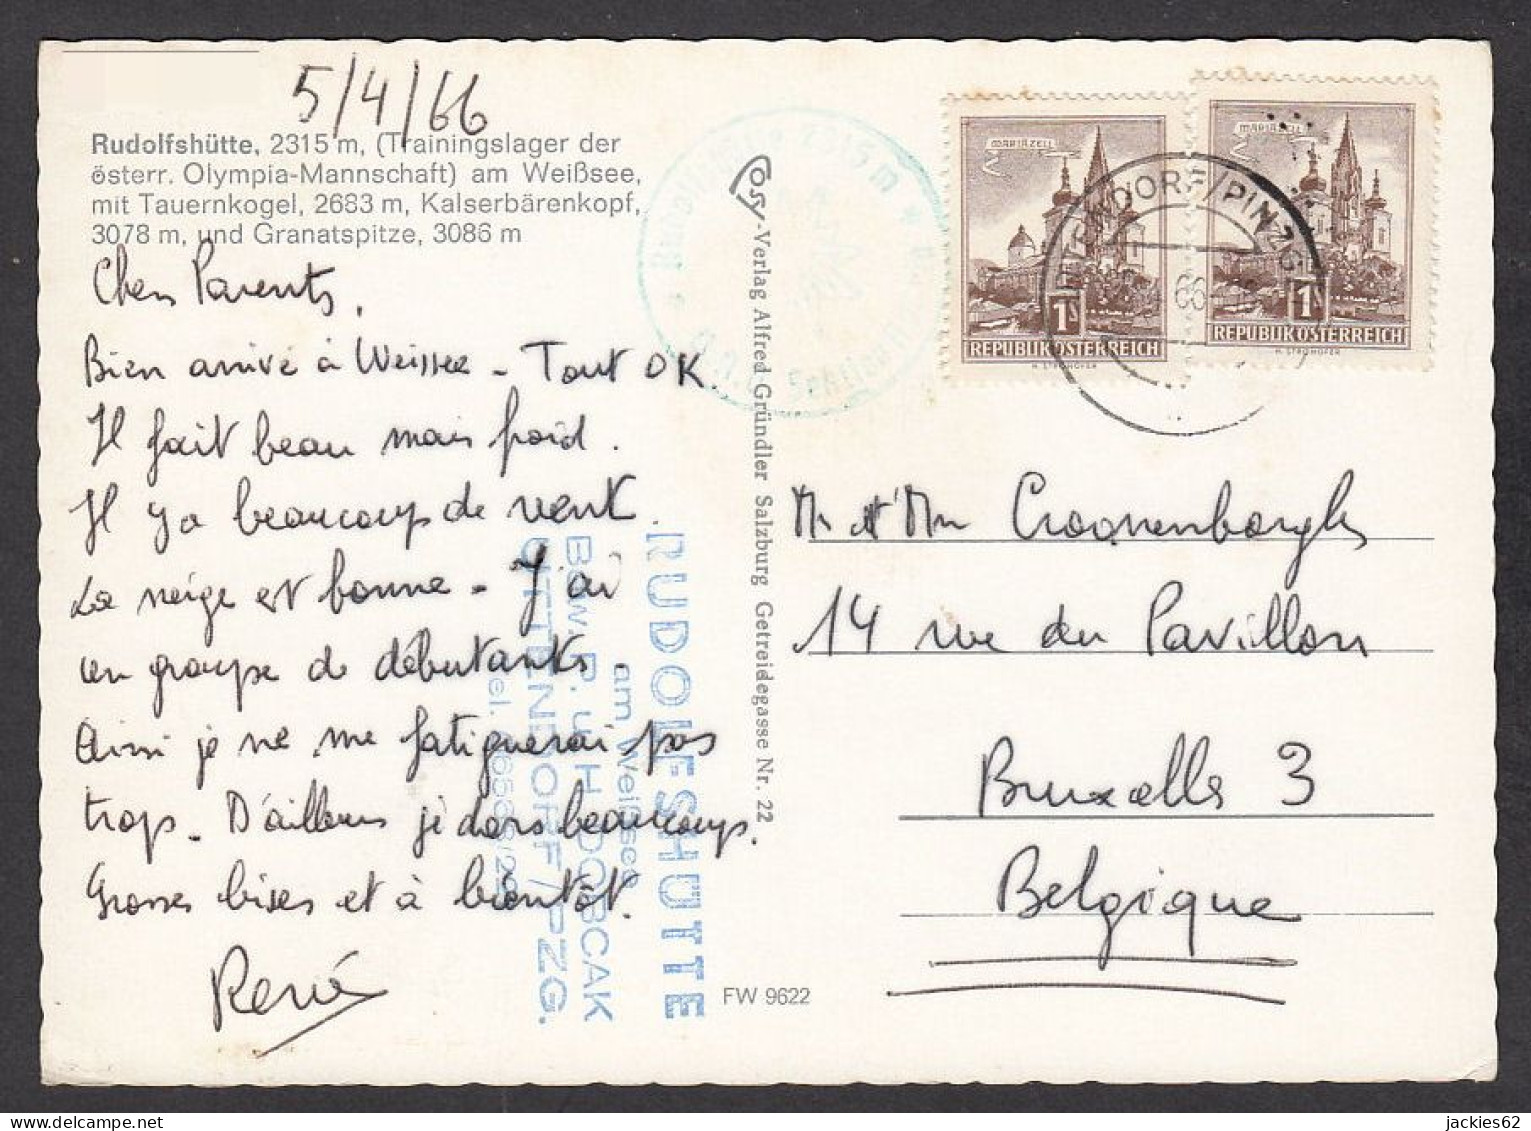 5/4/66
Rudolfshütte, 2315 m, (Trainingslager der
österr. Olympia-Mannschaft) am Weißsee,
mit Tauernkogel, 2683 m, Kalserbärenkopf,
3078 m, und Granatspitze, 3086 m
Chers Parents,
Bien arrivé à Weissee - Tout OK.
Il fait beau mais froid.
Il y a beaucoup de vent.
La neige est bonne - J'ai
un groupe de débutants.
Ainsi je ne me fatiguerai pas
trop. D'ailleurs je dors beaucoup.
Grosses bises et à bientôt.
René
RUDOLFSHÜTTE
am Weißsee
Bew. P. u. H. DOBCAK
UTTENDORF / PZG.
Cosy-Verlag Alfred Gründler Salzburg Getreidegasse Nr. 22
FW 9622
Rudolfshütte 2315 m
MARIAZELL
1S
REPUBLIK ÖSTERREICH
H. STROHOFER
MARIAZELL
1S
REPUBLIK ÖSTERREICH
H. STROHOFER
TTENDORF/PINZG
66
Mr et Mme Croonenborghs
14 rue du Pavillon
Bruxelles 3
Belgique
jackies62